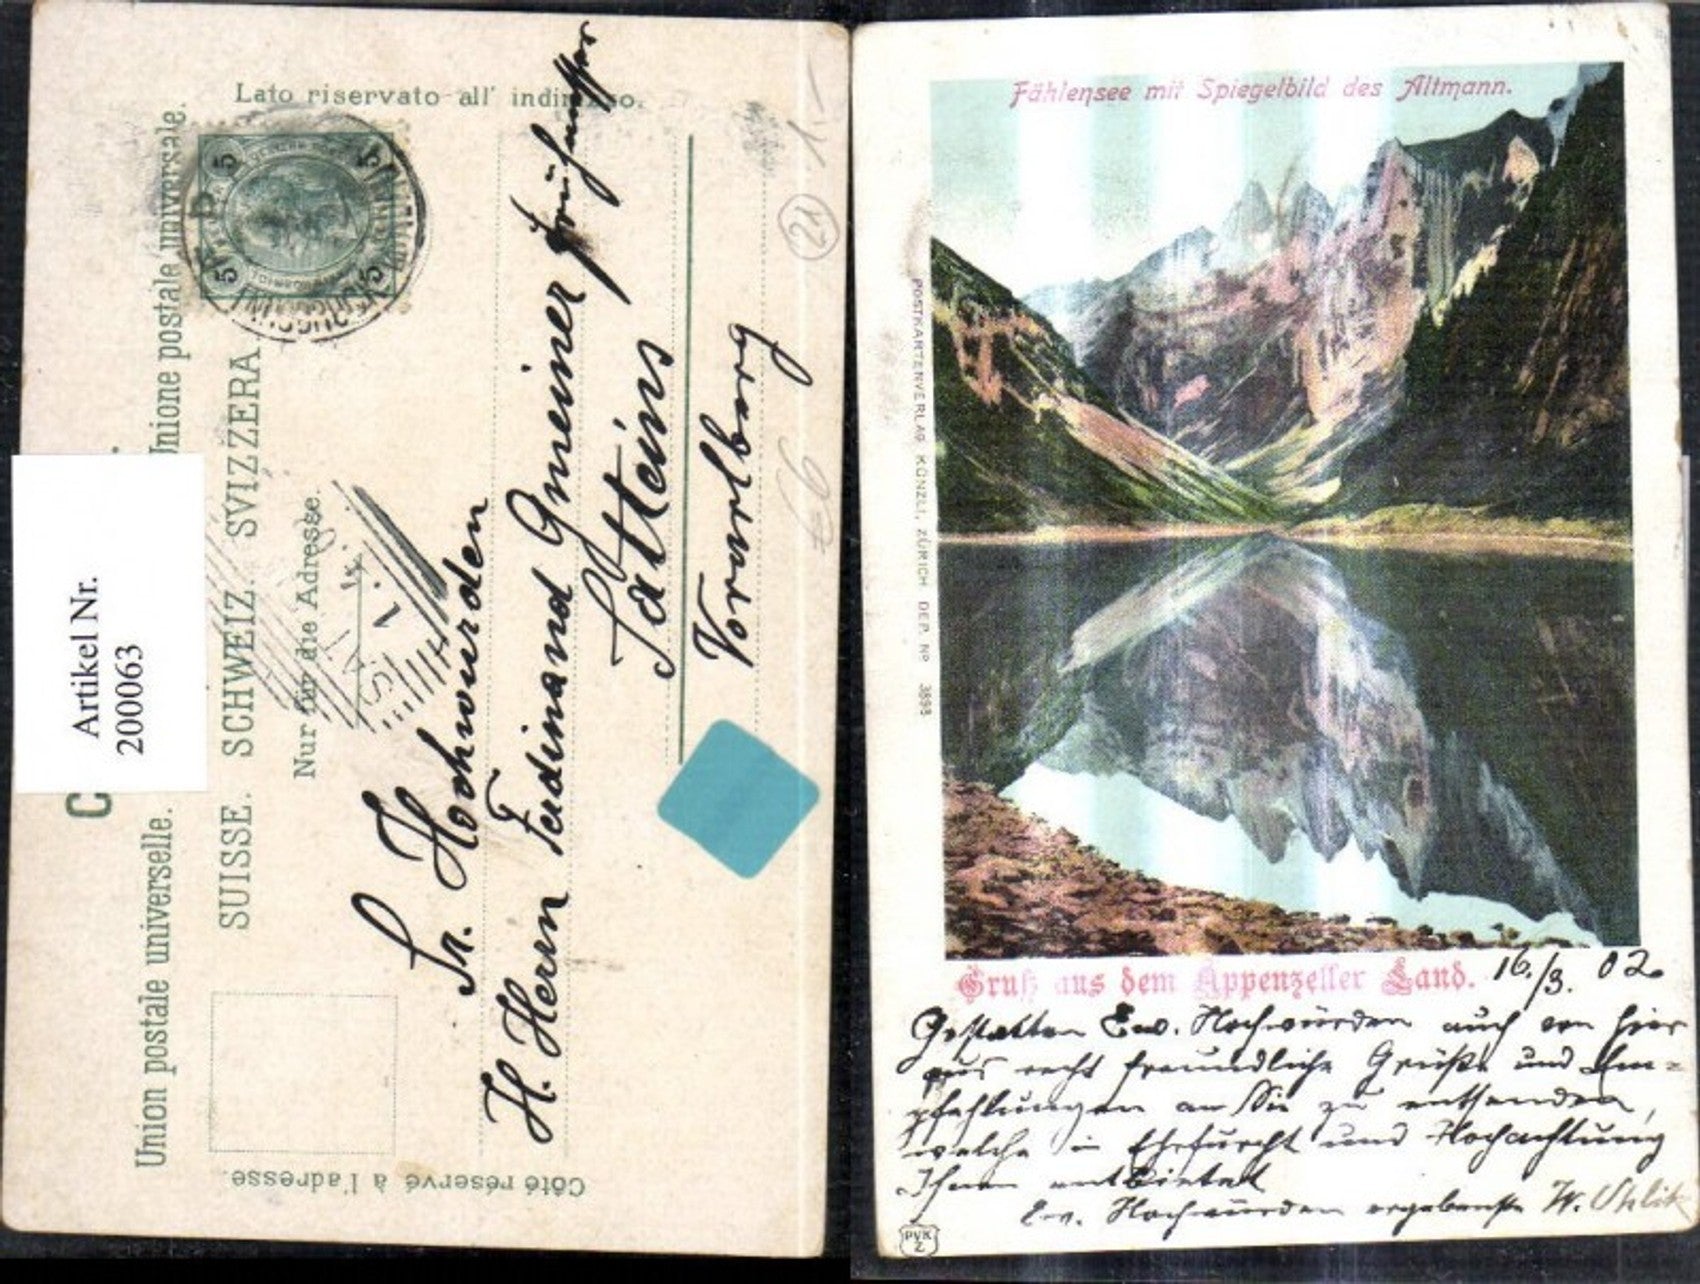 Lato riservato all' indirizzo.
Unione postale universale.
SUISSE. SCHWEIZ. SVIZZERA
Nur für die Adresse.
Union postale universelle.
Côté réservé à l'adresse.
5 5
5 5
Artikel Nr.
200063
Sr. Hochwürden
H. Herrn Ferdinand Gmeiner
Satteins
Vorarlberg
21
1.-
€6
Fählensee mit Spiegelbild des Altmann.
POSTKARTENVERLAG KÜNZLI, ZÜRICH DEP. Nº 3898
Gruß aus dem Appenzeller Land. 16./3. 02.
Gestatten Euv. Hochwürden auch von hier
aus recht freundliche Grüße und Em-
pfehlungen an Sie zu entsenden,
welche in Ehrfurcht und Hochachtung
Ihnen entbietet
Euv. Hochwürden ergebenste W.
PVK
Z